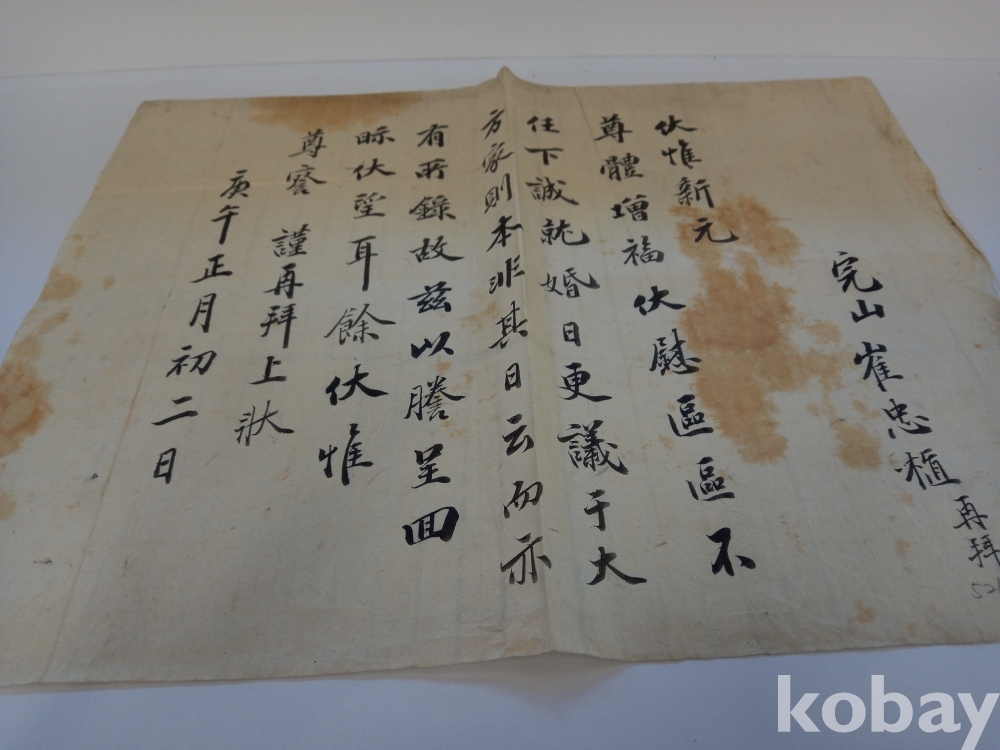 完山崔忠植再拜
伏惟新元
尊體增福伏慰區區不
任下誠就婚日更議于大
方家則本非其日云而亦
有所錄故玆以謄呈回
眎伏望耳餘伏惟
尊察謹再拜上狀
庚午正月初二日
kobay